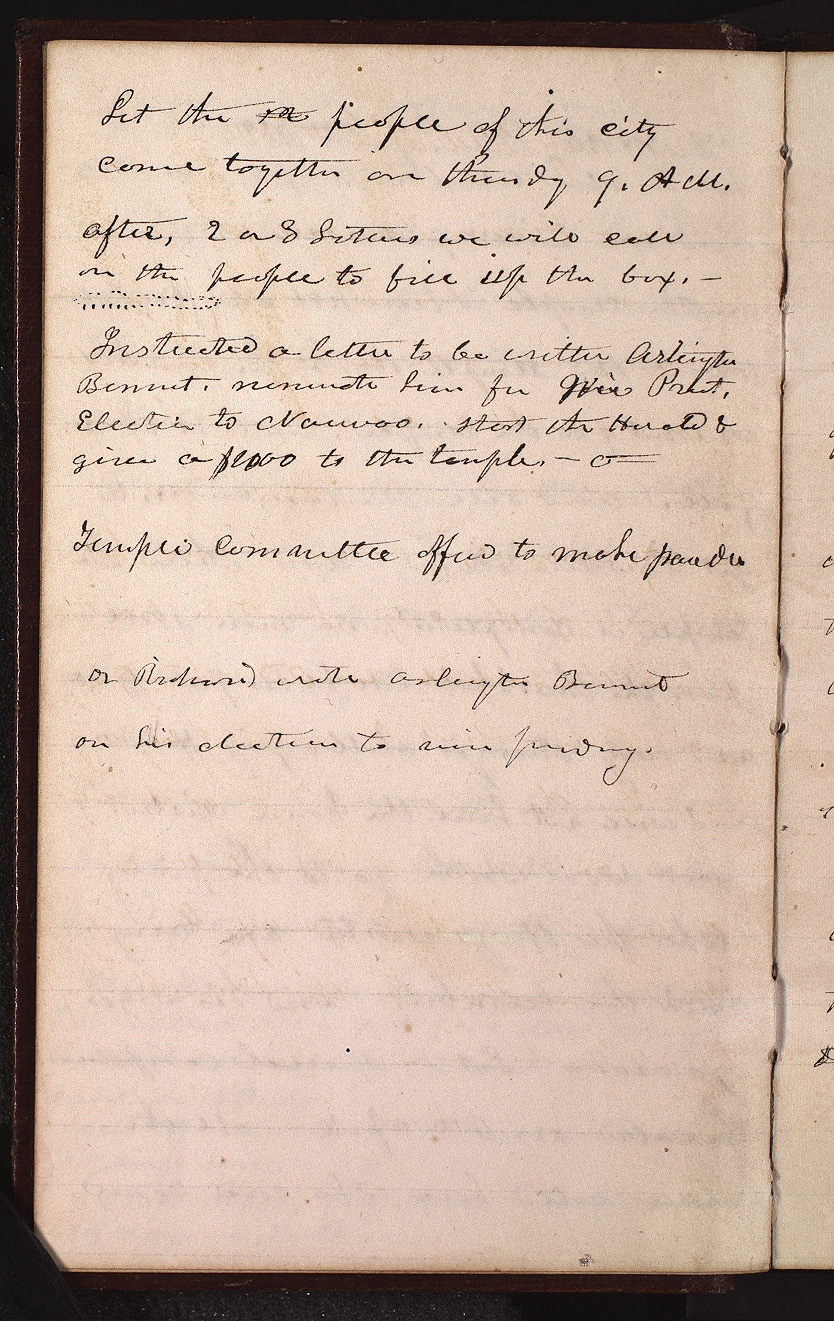 Let the people of this city
come together on thursdy 9. AM.
after, 2 or 3 Letters we will call
on the people to fill up the box. —
Instructed a letter to be written Arlington
Bennet. nominate him for Vice Presdt.
Election to Nauvoo. start the Herald &
give a $1000 to the temple. —
Temple Committee offered to make powder
or Richard write arlington Bennet
on his election to nine